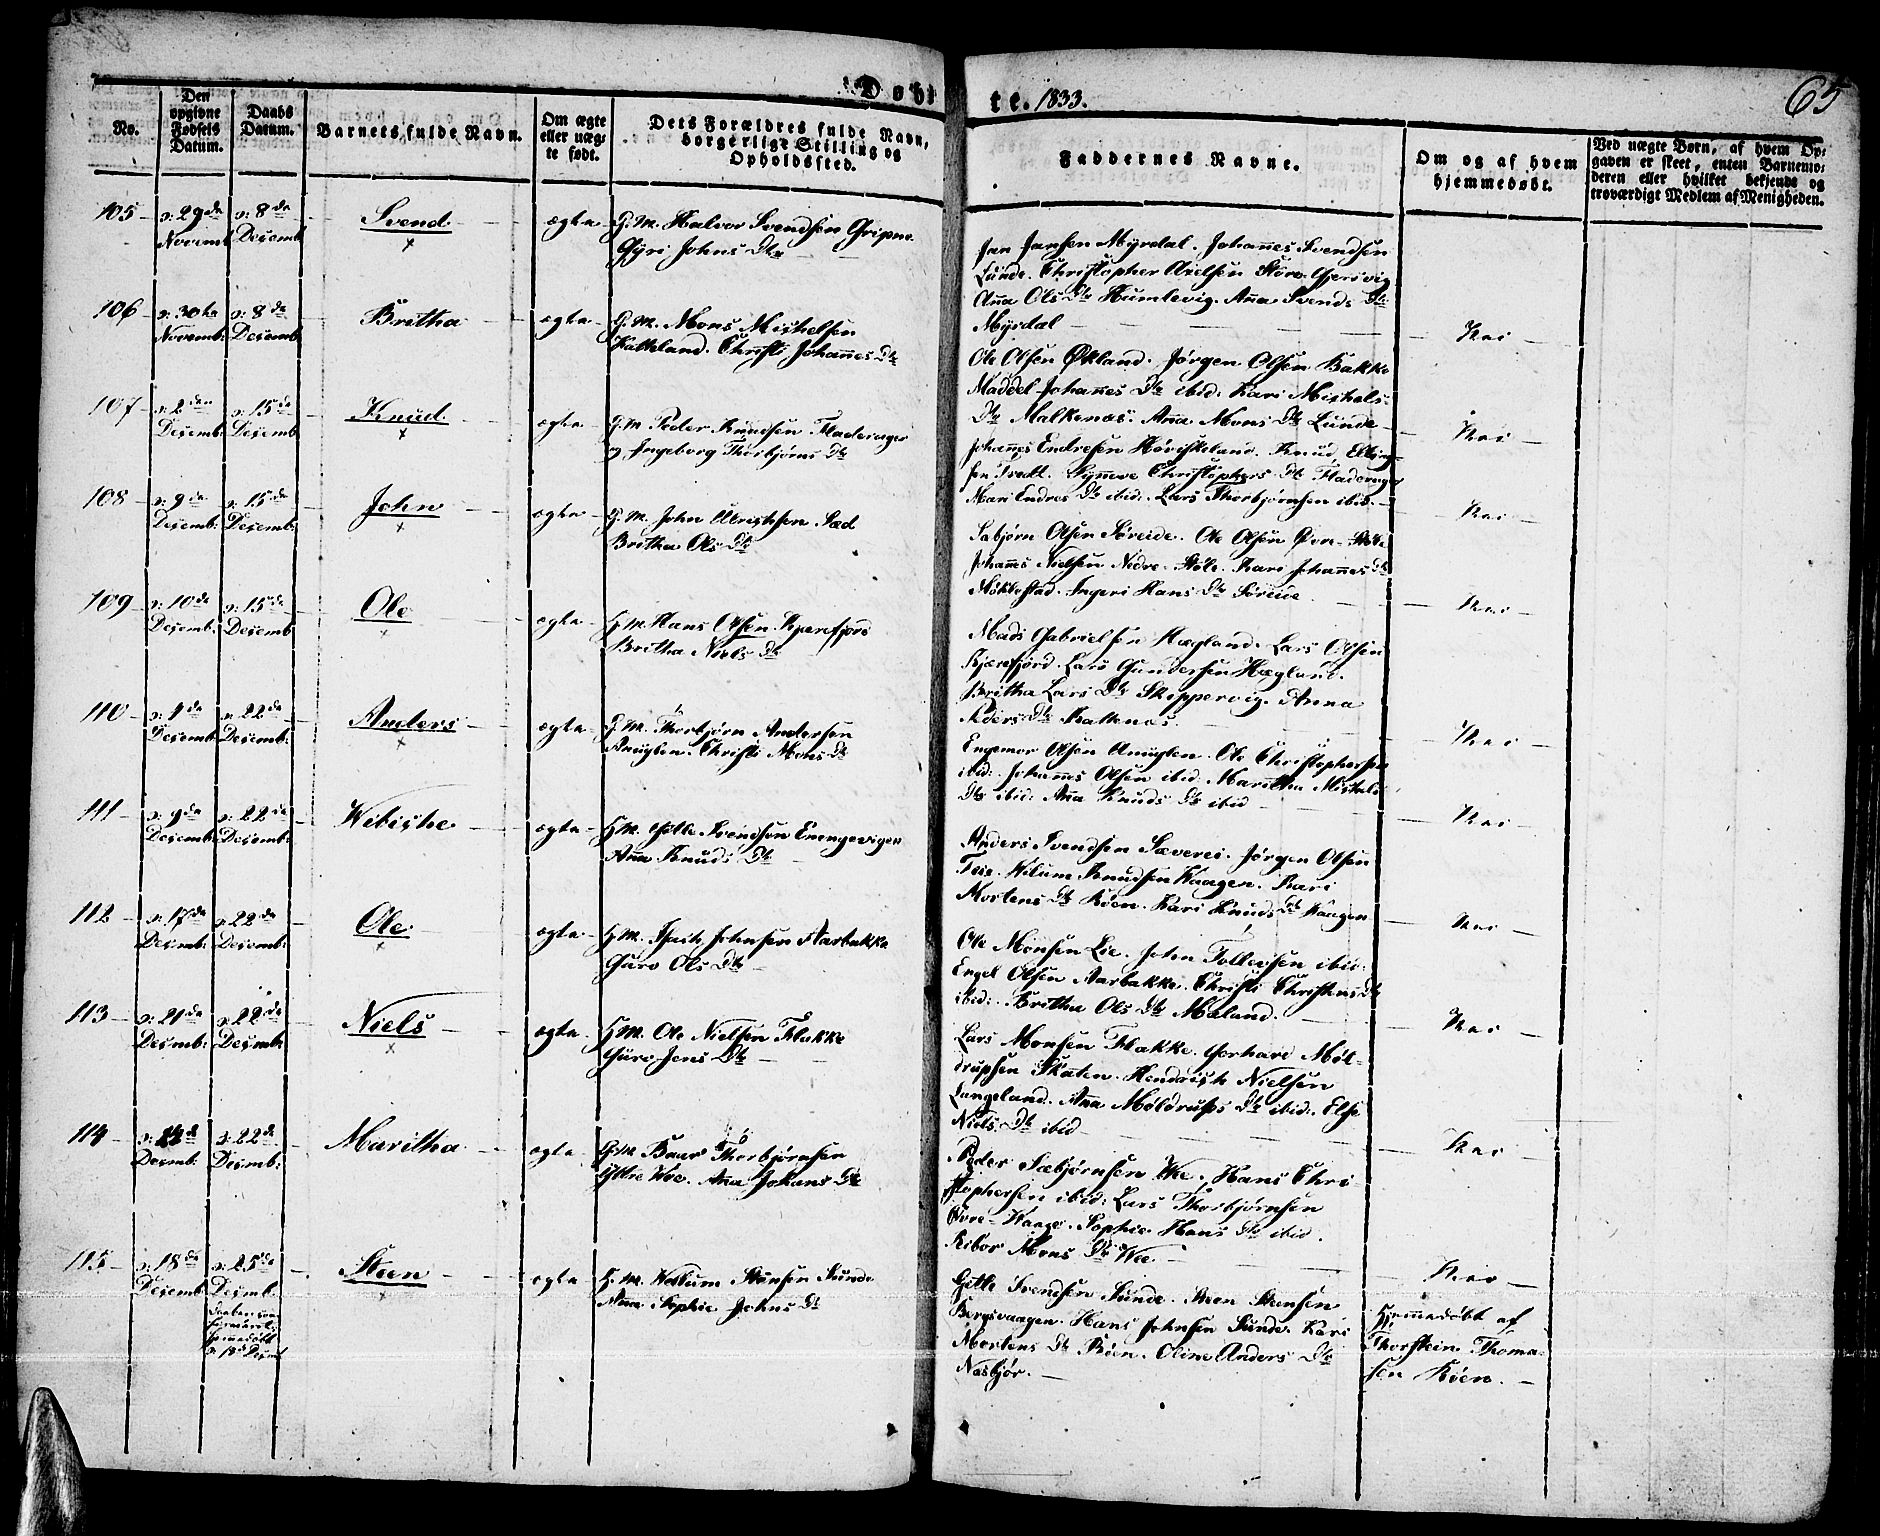 Døbte. 1833.
65
No.
Den opgivne Fødsels Datum.
Daabs Datum.
Barnets fulde Navn.
Om ægte eller uægte født.
Dets Forældres fulde Navn, borgerlige Stilling og Opholdssted.
Faddernes Navne.
Om og af hvem hjemmedøbt.
Ved uægte Børn, af hvem Opgaven er skeet, enten Barnemoderen eller hvilket bekjendt og troværdigt Medlem af Menigheden.
105 29de Novemb 8de Desemb Svend ægte G.M. Halvor Svendsen Gripne
Gyri Johns Dtr
Jan Jansen Myrdal. Johañes Svendsen
Lunde. Christopher Axelsen Store-Gjersvig
Aña Ols Dtr Humlevig. Aña Svends Dtr
Myrdal
106 30te Novemb: 8de Desemb Britha ægte G.M. Mons Mishelsen
Katteland. Christi Johañes Dtr
Nei
Ole Olsen Økland. Jørgen Olsen Bakke
Maddel Johañes Dtr ibid: Kari Mishels
Dtr Malkenæs. Aña Mons Dtr Lunde
107 2den Desemb 15de Desemb Knud ægte G.M. Peder Knudsen Fladerager
og Ingeborg Thorbjørns Dtr
Nei
Johañes Endresen Høviskeland. Knud
Tvedt. Christophers Dtr Fladerager
Mari Endres Dtr ibid: Lars Thorbjørnsen ibid.
108 9de Desemb: 15de Desemb: John ægte G.M. John Ulrishsen Sæd
Britha Ols Dtr
Nei
Sabjørn Olsen Søreide. Ole Olsen Øvre-Støle
Johañes Nielsen Nedre-Støle. Kari Johañes Dtr
Nøkkestad. Ingeri Hans Dtr Søreide
109 10de Desemb: 15de Desemb Ole ægte H.M. Hans Olsen Kjærefjord
Britha Niels Dtr
Nei
Mads Gabrielsen Hægland. Lars Olsen
Kjærefjord. Lars Gundersen Hægland.
Britha Lars Dtr Skippervig. Anna
Peders Dtr Kalkenæs
110 4de Desemb: 22de Desemb: Anders ægte G.M. Thorbjørn Andersen
Anuglen. Christi Mons Dtr
Nei
Engemor Olsen Anuglen. Ole Christophersen
ibid: Johañes Olsen ibid: Maritha Mishels
Dtr ibid: Aña Knuds Dtr ibid
111 9de Desemb: 22de Desemb: Webishe ægte H.M. Gitle Svendsen Enengevigen
Aña Knuds Dtr
Nei
Anders Svendsen Sæverei. Jørgen Olsen
Teie. Wilum Knudsen Waagen. Kari
Mortens Dtr Røen. Kari Knuds Dtr Waagen
112 17de Desemb: 22de Desemb: Ole ægte H.M. Johnsen Aarbakke
Guro Ols Dtr
Nei
Ole Monsen Lie. John Tollevsen ibid:
Engel Olsen Aarbakke. Christi Christens Dtr
ibid: Britha Ols Dtr Mæland.
113 21de Desemb: 22de Desemb: Niels ægte H.M. Ole Nielsen Flakke
Guro Jens Dtr
Nei
Lars Monsen Flakke. Gerhard Møl-
drupsen Skaten. Hendrish Nielsen
Langeland. Aña Møldrups Dtr ibid: Else
Niels Dtr ibid
114 Desemb: 22de Desemb: Maritha ægte G.M. Baar Thorbjørnsen
Yttre Wee. Aña Johans Dtr
Nei
Peder Sæbjørnsen Wee. Hans Chri-
stophersen ibid: Lars Thorbjørnsen
Øvre-Waage. Sophie Hans Dtr ibid.
Ribor Mons Dtr Wee
115 18de Desemb 25de Desemb. Steen ægte H.M. Wellum Stensen Sunde
Aña Sophie Johns Dtr
Nei
Gitle Svendsen Sunde. Steen Stensen
Bergsvaagen. Hans Johnsen Sunde. Kari
Mortens Dtr Røen. Oline Anders Dtr
Næsbjør.
Hjemmedøbt af
Thorstein Thoma-
sen Røen.
hjemmedøbt
d: 18de Desemb